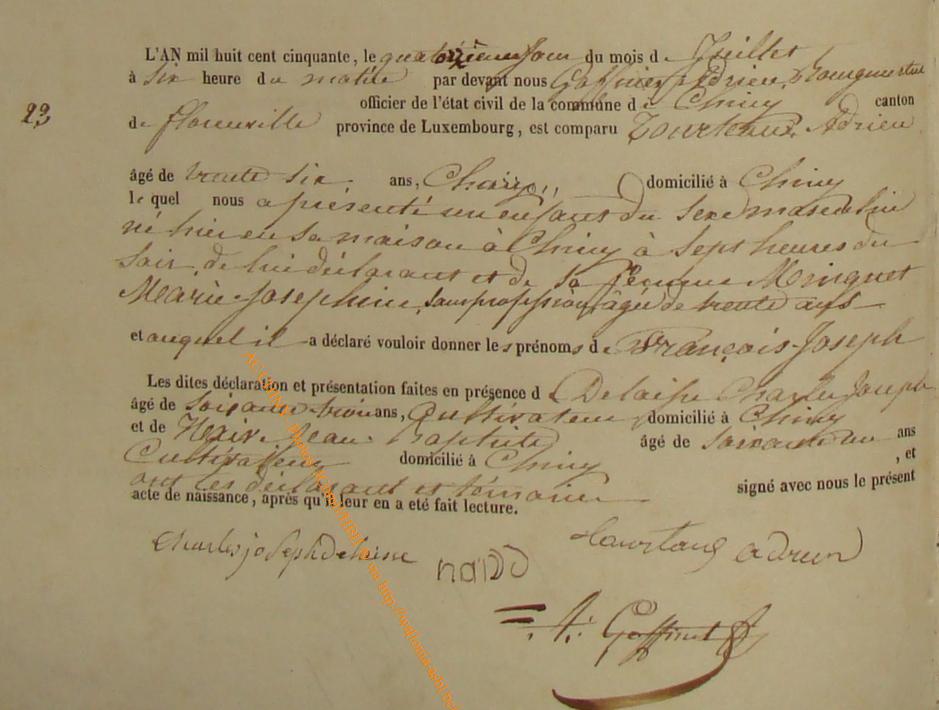 L'AN mil huit cent cinquante, le quatorzième jour du mois d e Juillet
à Six heure du matin par devant nous Goffinet Adrien, Bourgmestre
23 officier de l'état civil de la commune de Chiny canton
de florenville province de Luxembourg, est comparu Tourtaux Adrien
âgé de trente six ans, domicilié à Chiny
le quel nous a présenté un enfant du Sexe masculin
né hier en sa maison à Chiny à Sept heures du
soir, de lui déclarant et de Sa femme Minguet
Marie Josephine, Sans profession, agée de trente ans
et auquel il a déclaré vouloir donner les prénoms de François-Joseph
Les dites déclaration et présentation faites en présence d e Delaisse Charles Joseph
âgé de Soixante trois ans, Cultivateur, domicilié à Chiny
et de Jean Baptiste âgé de Soixante un ans
Cultivateur domicilié à Chiny , et
ont les déclarant et témoins signé avec nous le présent
acte de naissance, après qu'il leur en a eté fait lecture.
Charles joseph delaisse
tourtaux adrien
A: Goffinet